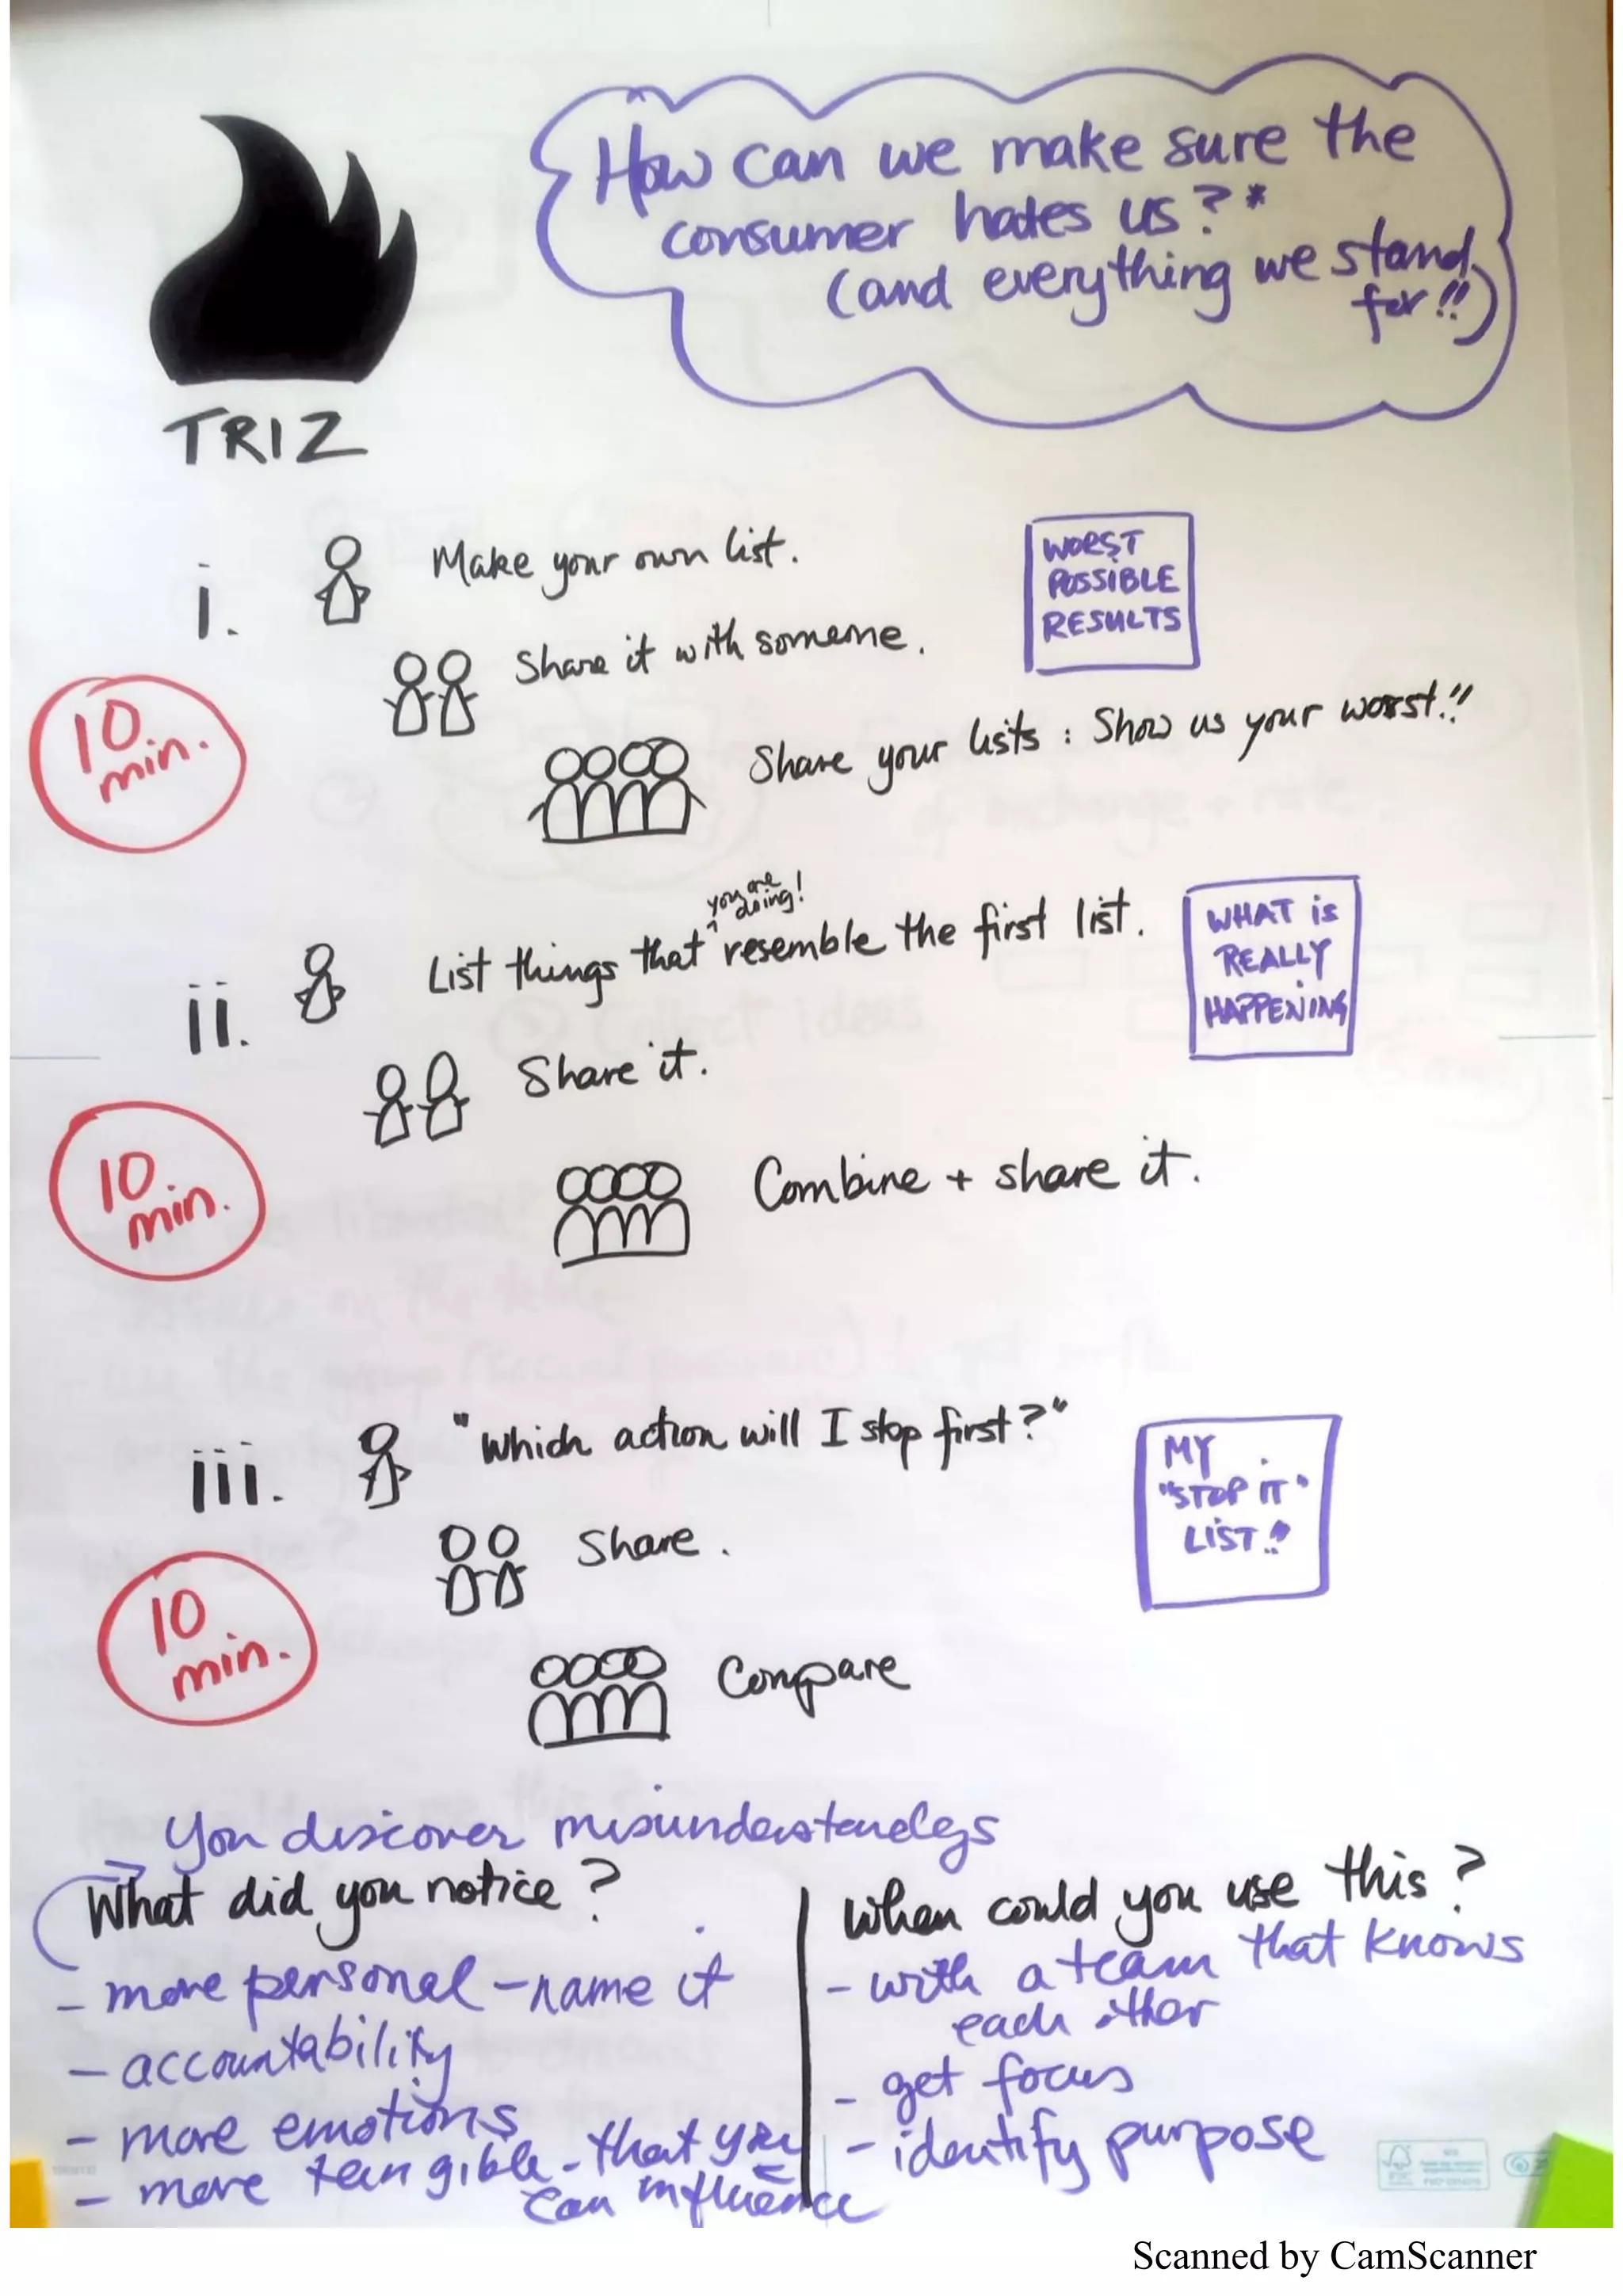 How can we make sure the
consumer hates us?*
(and everything we stand
for!!)
TRIZ
i.
Make your own list.
WORST
POSSIBLE
RESULTS
Share it with someone.
10
min.
Share your lists : Show us your worst!!
you are
doing!
ii.
List things that resemble the first list.
WHAT is
REALLY
HAPPENING
Share it.
10
min.
Combine + share it.
iii.
"Which action will I stop first?"
MY
"STOP IT"
LIST!!
Share.
10
min.
Compare
You discover misunderstandegs
What did you notice?
- more personal - name it
- accountability
- more emotions
- more tangible - that you
can influence
When could you use this?
- with a team that knows
each other
- get focus
- identify purpose
Scanned by CamScanner